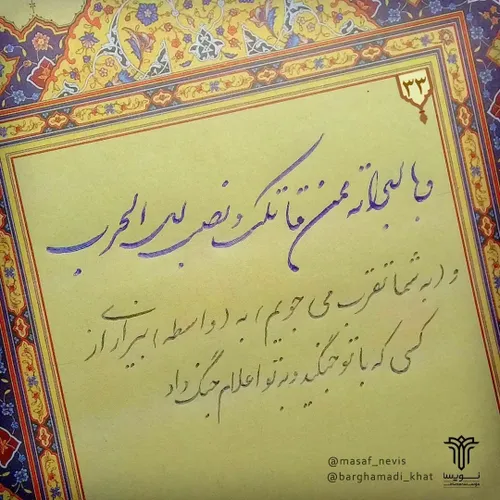 ۳۳
و بالبرائة ممن قاتلک و نصب لک الحرب
و (به شما تقرب می جویم) به (واسطه) بیزاری از
کسی که با تو جنگید و به تو اعلام جنگ داد
@masaf_nevis
@barghamadi_khat
نویسا